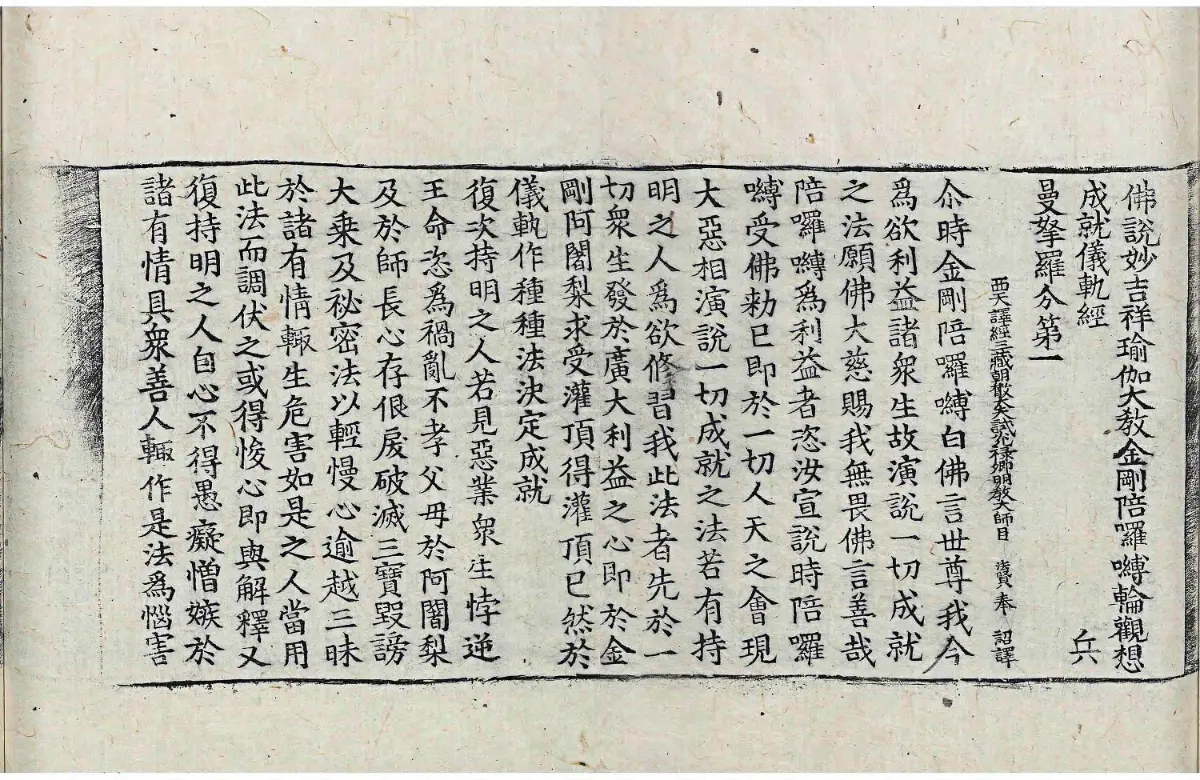 佛說妙吉祥瑜伽大教金剛陪囉嚩輪觀想
成就儀軌經　兵
曼拏羅分第一
西天譯經三藏朝散大夫試光祿卿明教大師臣　法賢　奉　詔譯
尒時金剛陪囉嚩白佛言世尊我今
爲欲利益諸衆生故演說一切成就
之法願佛大慈賜我無畏佛言善哉
陪囉嚩爲利益者恣汝宣說時陪囉
嚩受佛勑已即於一切人天之會現
大惡相演說一切成就之法若有持
明之人爲欲修習我此法者先於一
切衆生發於廣大利益之心即於金
剛阿闍梨求受灌頂得灌頂已然於
儀軌作種種法決定成就
復次持明之人若見惡業衆生悖逆
王命恣爲禍亂不孝父母於阿闍梨
及於師長心存佷戾破滅三寶毀謗
大乘及祕密法以輕慢心逾越三昧
於諸有情輙生危害如是之人當用
此法而調伏之或得悛心即與解釋又
復持明之人自心不得愚癡憎嫉於
諸有情具衆善人輙作是法爲惱害